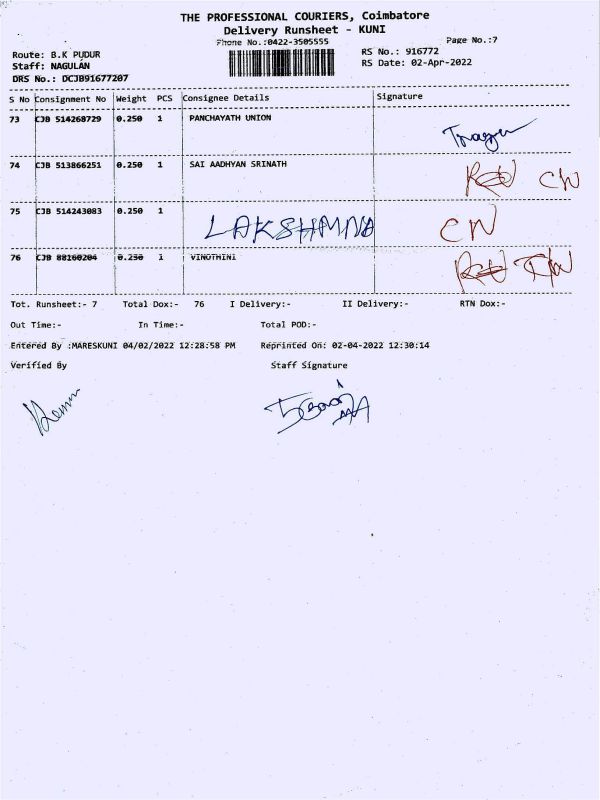 THE PROFESSIONAL COURIERS, Coimbatore
Delivery Runsheet - KUNI
Phone No.:0422-3505555
Page No.:7
Route: B.K PUDUR
RS No.: 916772
Staff: NAGULAN
RS Date: 02-Apr-2022
DRS No.: DCJB91677207
S No Consignment No Weight PCS Consignee Details Signature
73 CJB 514268729 0.250 1 PANCHAYATH UNION
74 CJB 513866251 0.250 1 SAI AADHYAN SRINATH CN
75 CJB 514243083 0.250 1 LAKSHMNA CN
76 CJB 88160204 0.250 1 VINOTHINI
Tot. Runsheet:- 7 Total Dox:- 76 I Delivery:- II Delivery:- RTN Dox:-
Out Time:- In Time:- Total POD:-
Entered By :MARESKUNI 04/02/2022 12:28:58 PM Reprinted On: 02-04-2022 12:30:14
Verified By Staff Signature